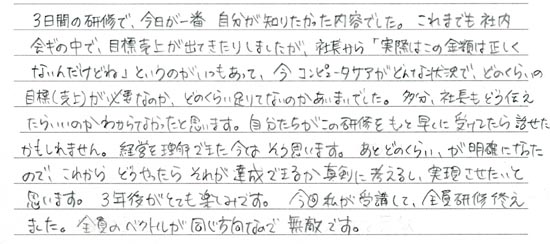 3日間の研修で、今日が一番 自分が知りたかった内容でした。これまでも社内
会ギの中で、目標売上が出てきたりしましたが、社長から「実際はこの金額は正しく
ないんだけどね」というのが、いつもあって、今コンピュータケアがどんな状況で、どのくらいの
目標(売上)が必要なのか、どのくらい足りてないのかあいまいでした。多分、社長もどう伝え
たらいいのかわからなかったと思います。自分たちがこの研修をもっと早くに受けてたら話せた
かもしれません。経営を理解できた今なら そう思います。あとどのくらい、が明確になった
ので、これから どうやったら それが 達成できるか 真剣に考えるし、実現させたいと
思います。3年後がとても楽しみです。今回私が受講して、全員研修終え
ました。全員のベクトルが同じ方向なので 無敵です。